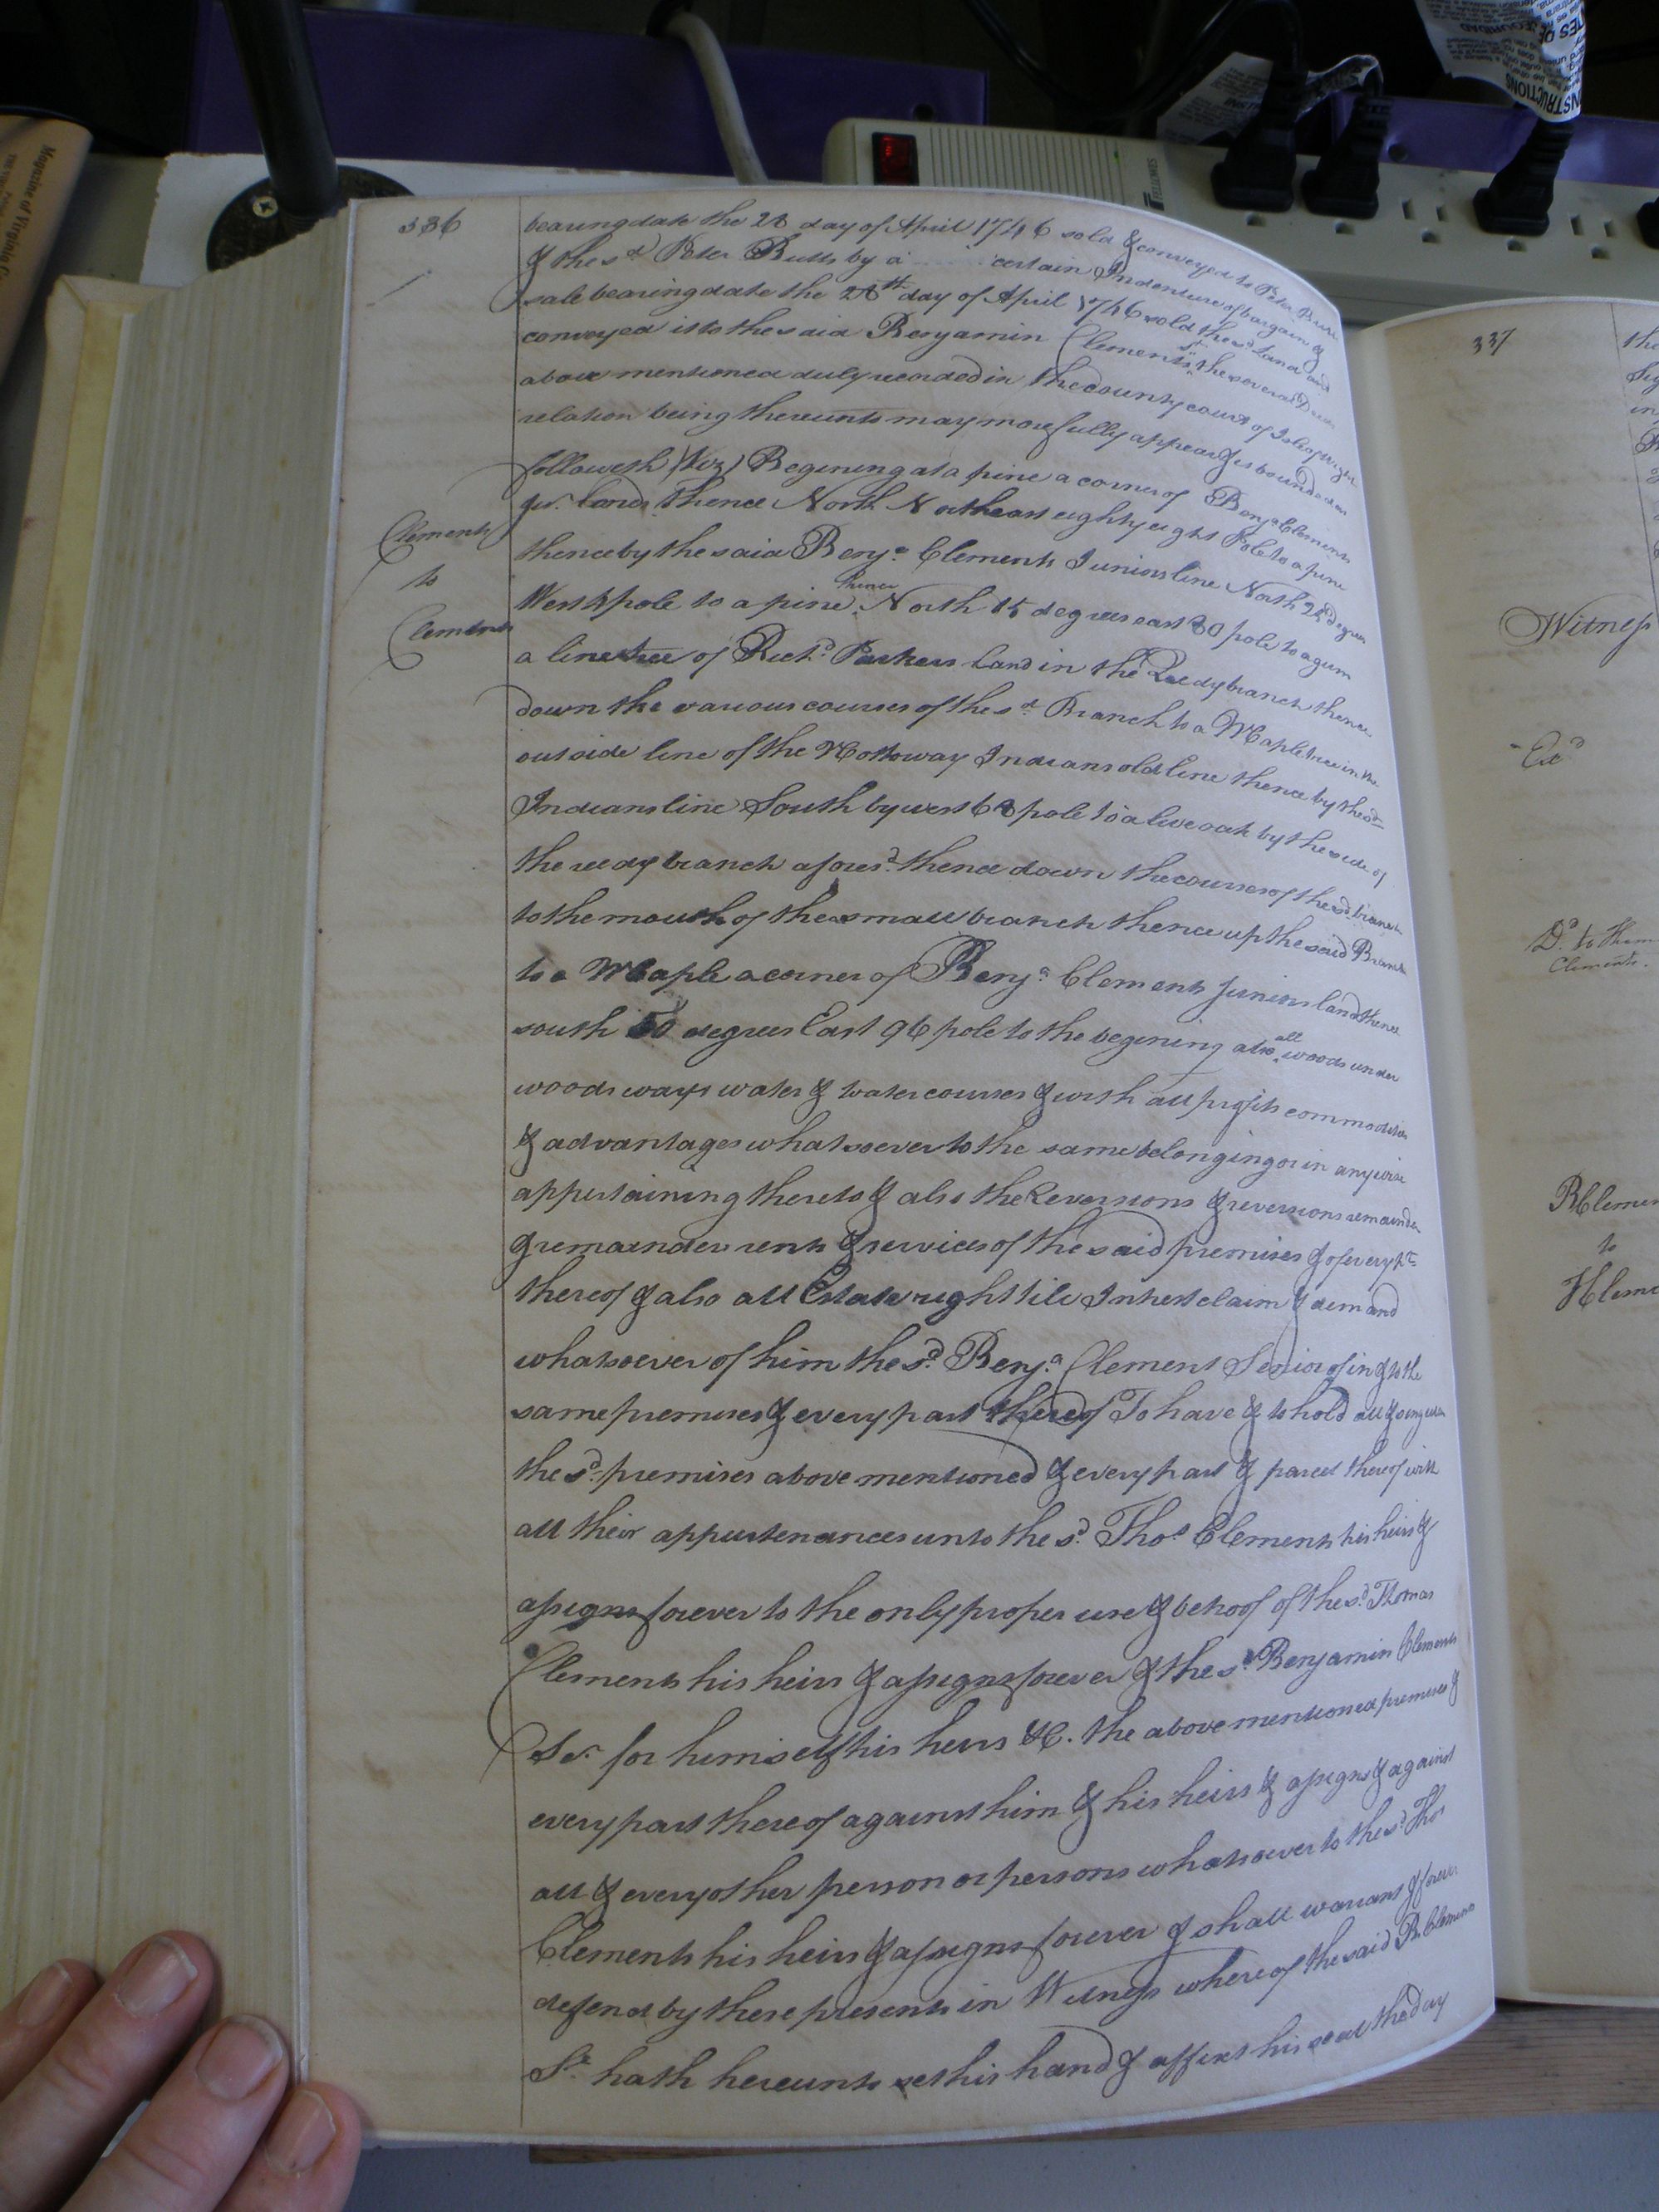 336
bearing date the 28 day of April 1746 sold & conveyed to Peter Butts
& the sd Peter Butts by a certain Indenture of bargain &
sale bearing date the 28th day of April 1746 sold the sd Land and
conveyed it to the said Benjamin Clements Sr. the several Deeds
above mentioned duly recorded in the county court of Isle of Wight
relation being thereunto may more fully appear & is bounded as
followeth (Viz) Begining at a pine a corner of Benja Clements
jur. land thence North Northeast eighty eight Pole to a pine
thence by the said Benja Clements Juniors line North 25 degrees
West pole to a pine thence North 15 degrees east 80 pole to a gum
a line tree of Richd Parkers Land in the Reedy branch thence
down the various courses of the sd Branch to a Maple tree in the
outside line of the Nottoway Indians old line thence by the sd
Indians line South by west 68 pole to a live oak by the side of
the reedy branch afores'd thence down the courses of the sd branch
to the mouth of the small branch thence up the said Branch
to a Maple a corner of Benja Clements juniors land thence
south 50 degrees East 96 pole to the begining also all woods under
woods ways water & water courses & with all profits commodities
& advantages whatsoever to the same belonging or in any wise
appertaining thereto & also the Reversions & reversions remainder
& remainders rents & services of the said premises & of every pt
thereof & also all Estate right title Interest claim & demand
whatsoever of him the sd Benja Clement Senior of in & to the
same premises & every part thereof To have & to hold all & singular
the sd premises above mentioned & every part & parcel thereof with
all their appurtenances unto the sd Thos Clements his heirs &
assigns forever to the only proper use & behoof of the sd Thomas
Clements his heirs & assigns forever & the sd Benjamin Clements
Sr. for himself his heirs &C. the above mentioned premises &
every part thereof against him & his heirs & assigns & against
all & every other person or persons whatsoever to the sd Thos
Clements his heirs & assigns forever & shall warrant & forever
defend by these presents in Witness whereof the said B. Clements
Sr hath hereunto set his hand & affixt his seal the day
Clements
to
Clements
337
Witness
Exd
Dd. to Thom
Clements.
BClemen
to
HCleme
Magazine of Virginia
FELLOWES
INSTRUCTIONS